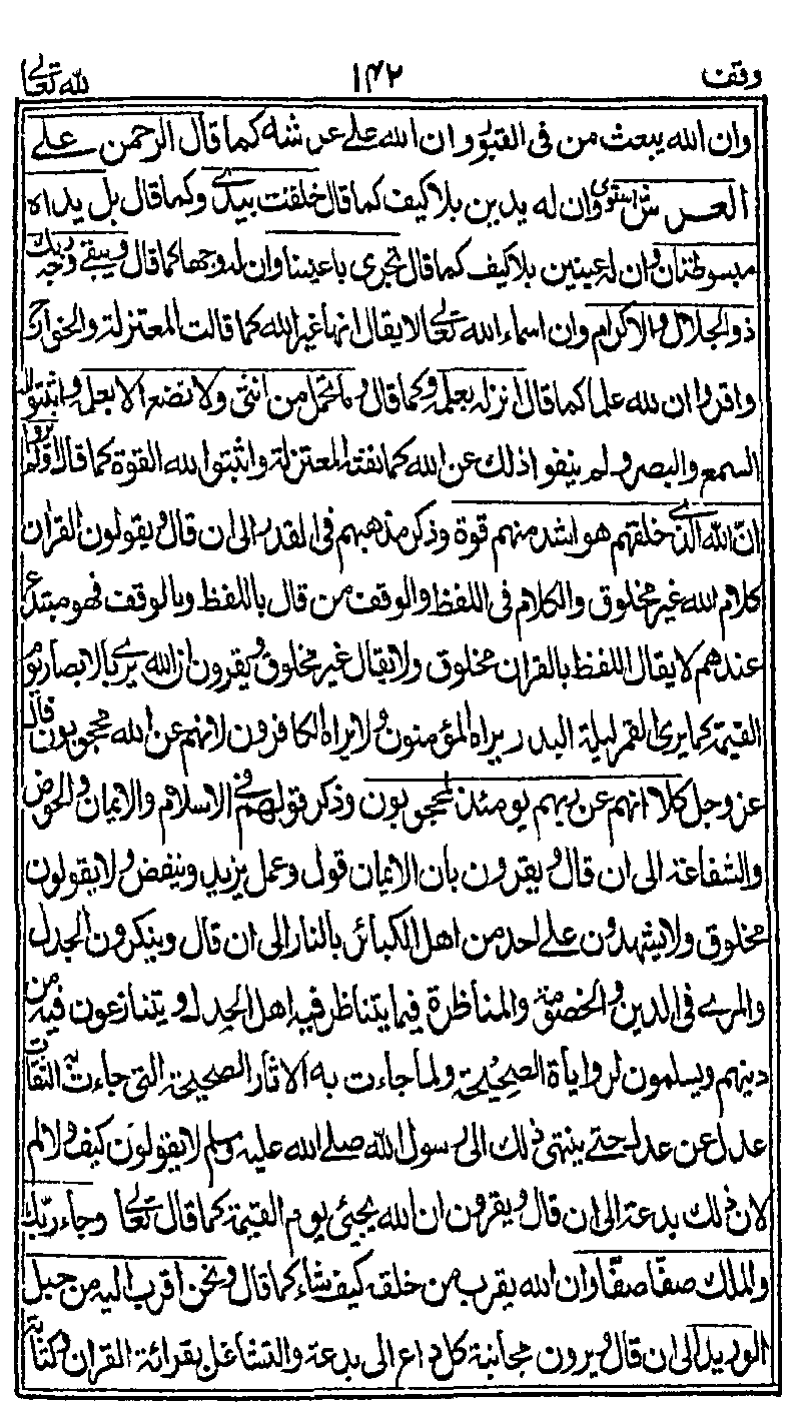 وقف ١٤٢ لله تعالى
وان الله يبعث من فى القبور وان الله على عرشه كما قال الرحمن على
العرش استوى وان له يدين بلاكيف كما قال خلقت بيدى وكما قال بل يداه
مبسوطتان وان له عينين بلاكيف كما قال تجرى باعيننا وان له وجها كما قال ويبقى وجه ربك
ذوالجلال والاكرام وان اسماء الله تعالى لا يقال انها غير الله كما قالت المعتزلة والخوارج
واقروا ان لله علما كما قال انزله بعلمه وكما قال وما تحمل من انثى ولا تضع الا بعلمه واثبتوا لله
السمع والبصر ولم ينفوا ذلك عن الله كما نفته المعتزلة واثبتوا لله القوة كما قال اولم يروا
ان الله الذى خلقهم هو اشد منهم قوة وذكر مذهبهم فى القدر الى ان قال ويقولون القران
كلام الله غير مخلوق والكلام فى اللفظ والوقف من قال باللفظ وبالوقف فهو مبتدع
عندهم لا يقال اللفظ بالقران مخلوق ولا يقال غير مخلوق ويقرون ان الله يرى بالابصار يوم
القيمة كما يرى القمر ليلة البدر يراه المؤمنون ولا يراه الكافرون لانهم عن الله محجوبون قال
عز وجل كلا انهم عن ربهم يومئذ لمحجوبون وذكر قولهم فى الاسلام والايمان والحوض
والشفاعة الى ان قال ويقرون بان الايمان قول وعمل يزيد وينقص ولا يقولون
مخلوق ولا يشهدون على احد من اهل الكبائر بالنار الى ان قال وينكرون الجدل
والمرى فى الدين والخصومة والمناظرة فيما يتناظر فيه اهل الجدل ويتنازعون فيه من
دينهم ويسلمون لروايأة الصحيحة ولما جاءت به الاثار الصحيحة التى جاءت به الثقات
عدل عن عدل حتى ينتهى ذلك الى رسول الله صلى الله عليه وسلم لا يقولون كيف ولا لم
لان ذلك بدعة الى ان قال ويقرون ان الله يجيئ يوم القيمة كما قال تعالى وجاء ربك
والملك صفّا صفّا وان الله يقرب من خلقه كيف شاء كما قال ونحن اقرب اليه من حبل
الوريد الى ان قال ويرون مجانبة كل داع الى بدعة والتشاغل بقرائة القران وكتابة